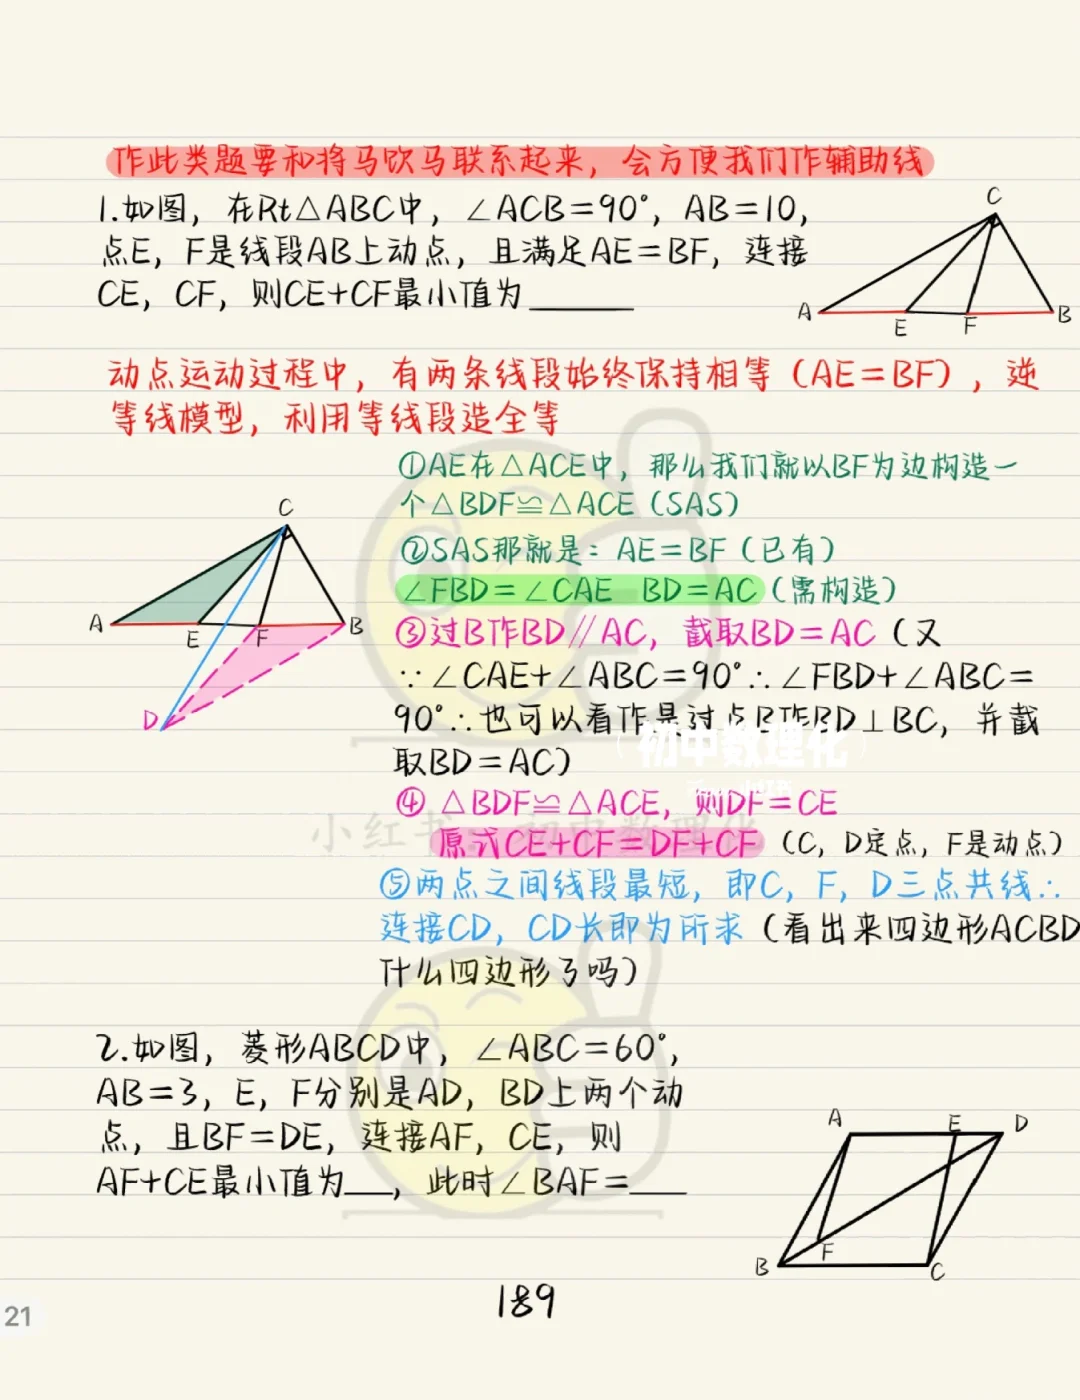 作此类题要和将马饮马联系起来，会方便我们作辅助线
1.如图，在Rt△ABC中，∠ACB=90°，AB=10，
点E，F是线段AB上动点，且满足AE=BF，连接
CE，CF，则CE+CF最小值为______
C
A
E
F
B
动点运动过程中，有两条线段始终保持相等（AE=BF），逆
等线模型，利用等线段造全等
①AE在△ACE中，那么我们就以BF为边构造一
个△BDF≌△ACE（SAS）
②SAS那就是：AE=BF（已有）
∠FBD=∠CAE BD=AC（需构造）
③过B作BD∥AC，截取BD=AC（又
∵∠CAE+∠ABC=90°∴∠FBD+∠ABC=
90°∴也可以看作是过点B作BD⊥BC，并截
取BD=AC）
④△BDF≌△ACE，则DF=CE
原式CE+CF=DF+CF（C，D定点，F是动点）
⑤两点之间线段最短，即C，F，D三点共线∴
连接CD，CD长即为所求（看出来四边形ACBD
什么四边形了吗）
C
A
E
F
B
D
初中数理化
小红书
2.如图，菱形ABCD中，∠ABC=60°，
AB=3，E，F分别是AD，BD上两个动
点，且BF=DE，连接AF，CE，则
AF+CE最小值为___，此时∠BAF=___
A
E
D
B
F
C
189
21